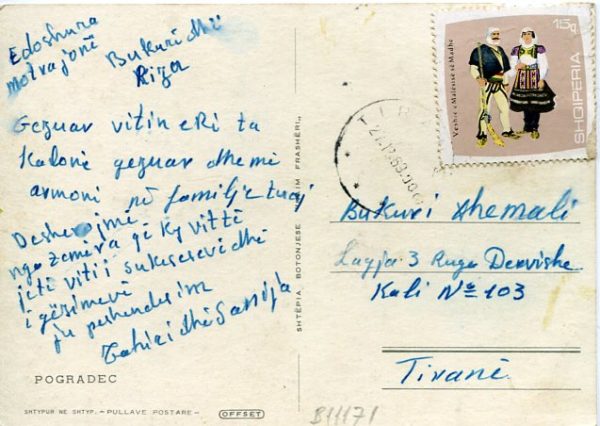 Edoshura
motrajonë
Bukuri dhë
Riza
Gezuar vitin eRi ta
Kalonë gezuar dhe mē
armoni në familje tuaj
Desherojmë
nga zemëra që ky vittë
jetë viti i suksesevë dhë
i gëzimevë
ju pershendesim
Tahiri dhë Sanija
POGRADEC
SHTYPUR NE SHTYP. – PULLAVE POSTARE –
OFFSET
SHTËPIA BOTONJESE FRASHËRI,
15q
SHQIPERIA
Veshje e Malesise së Madhe
Bukuri Xhemali
Lagja 3 Ruga Dervishe
Kali Nº 103
Tiranë
B11171